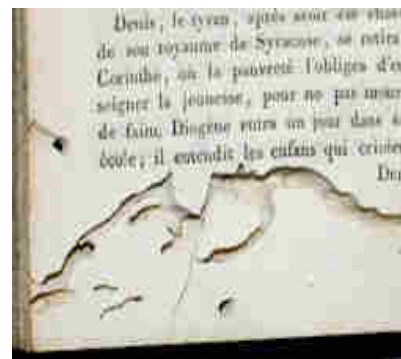 Denis, le tyran, après avoir été chassé
de son royaume de Syracuse, se retira
Corinthe, où la pauvreté l'obligea d'en
seigner la jeunesse, pour ne pas mourir
de faim. Diogène entra un jour dans
école; il entendit les enfans qui crioient